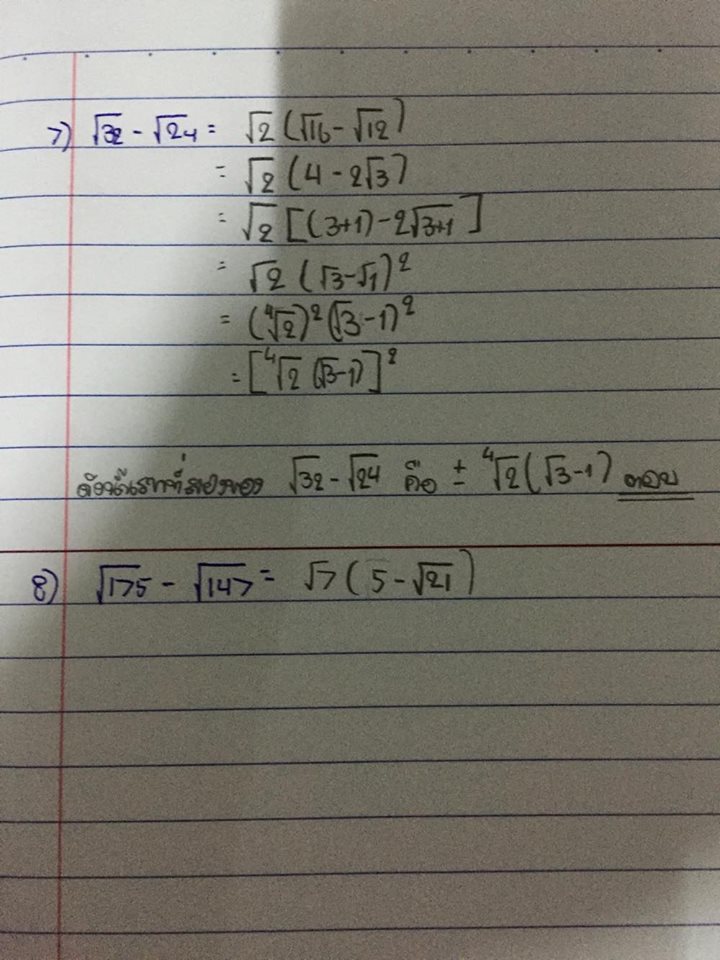 7) √32 - √24 = √2 (√16 - √12)
= √2 (4 - 2√3)
= √2 [(3+1) - 2√3+1]
= √2 (√3 - √1)²
= (⁴√2)² (√3 - 1)²
= [⁴√2 (√3-1)]²
ดังนั้นรากที่สองของ √32 - √24 คือ ± ⁴√2 (√3-1) ตอบ
8) √175 - √147 = √7 (5 - √21)